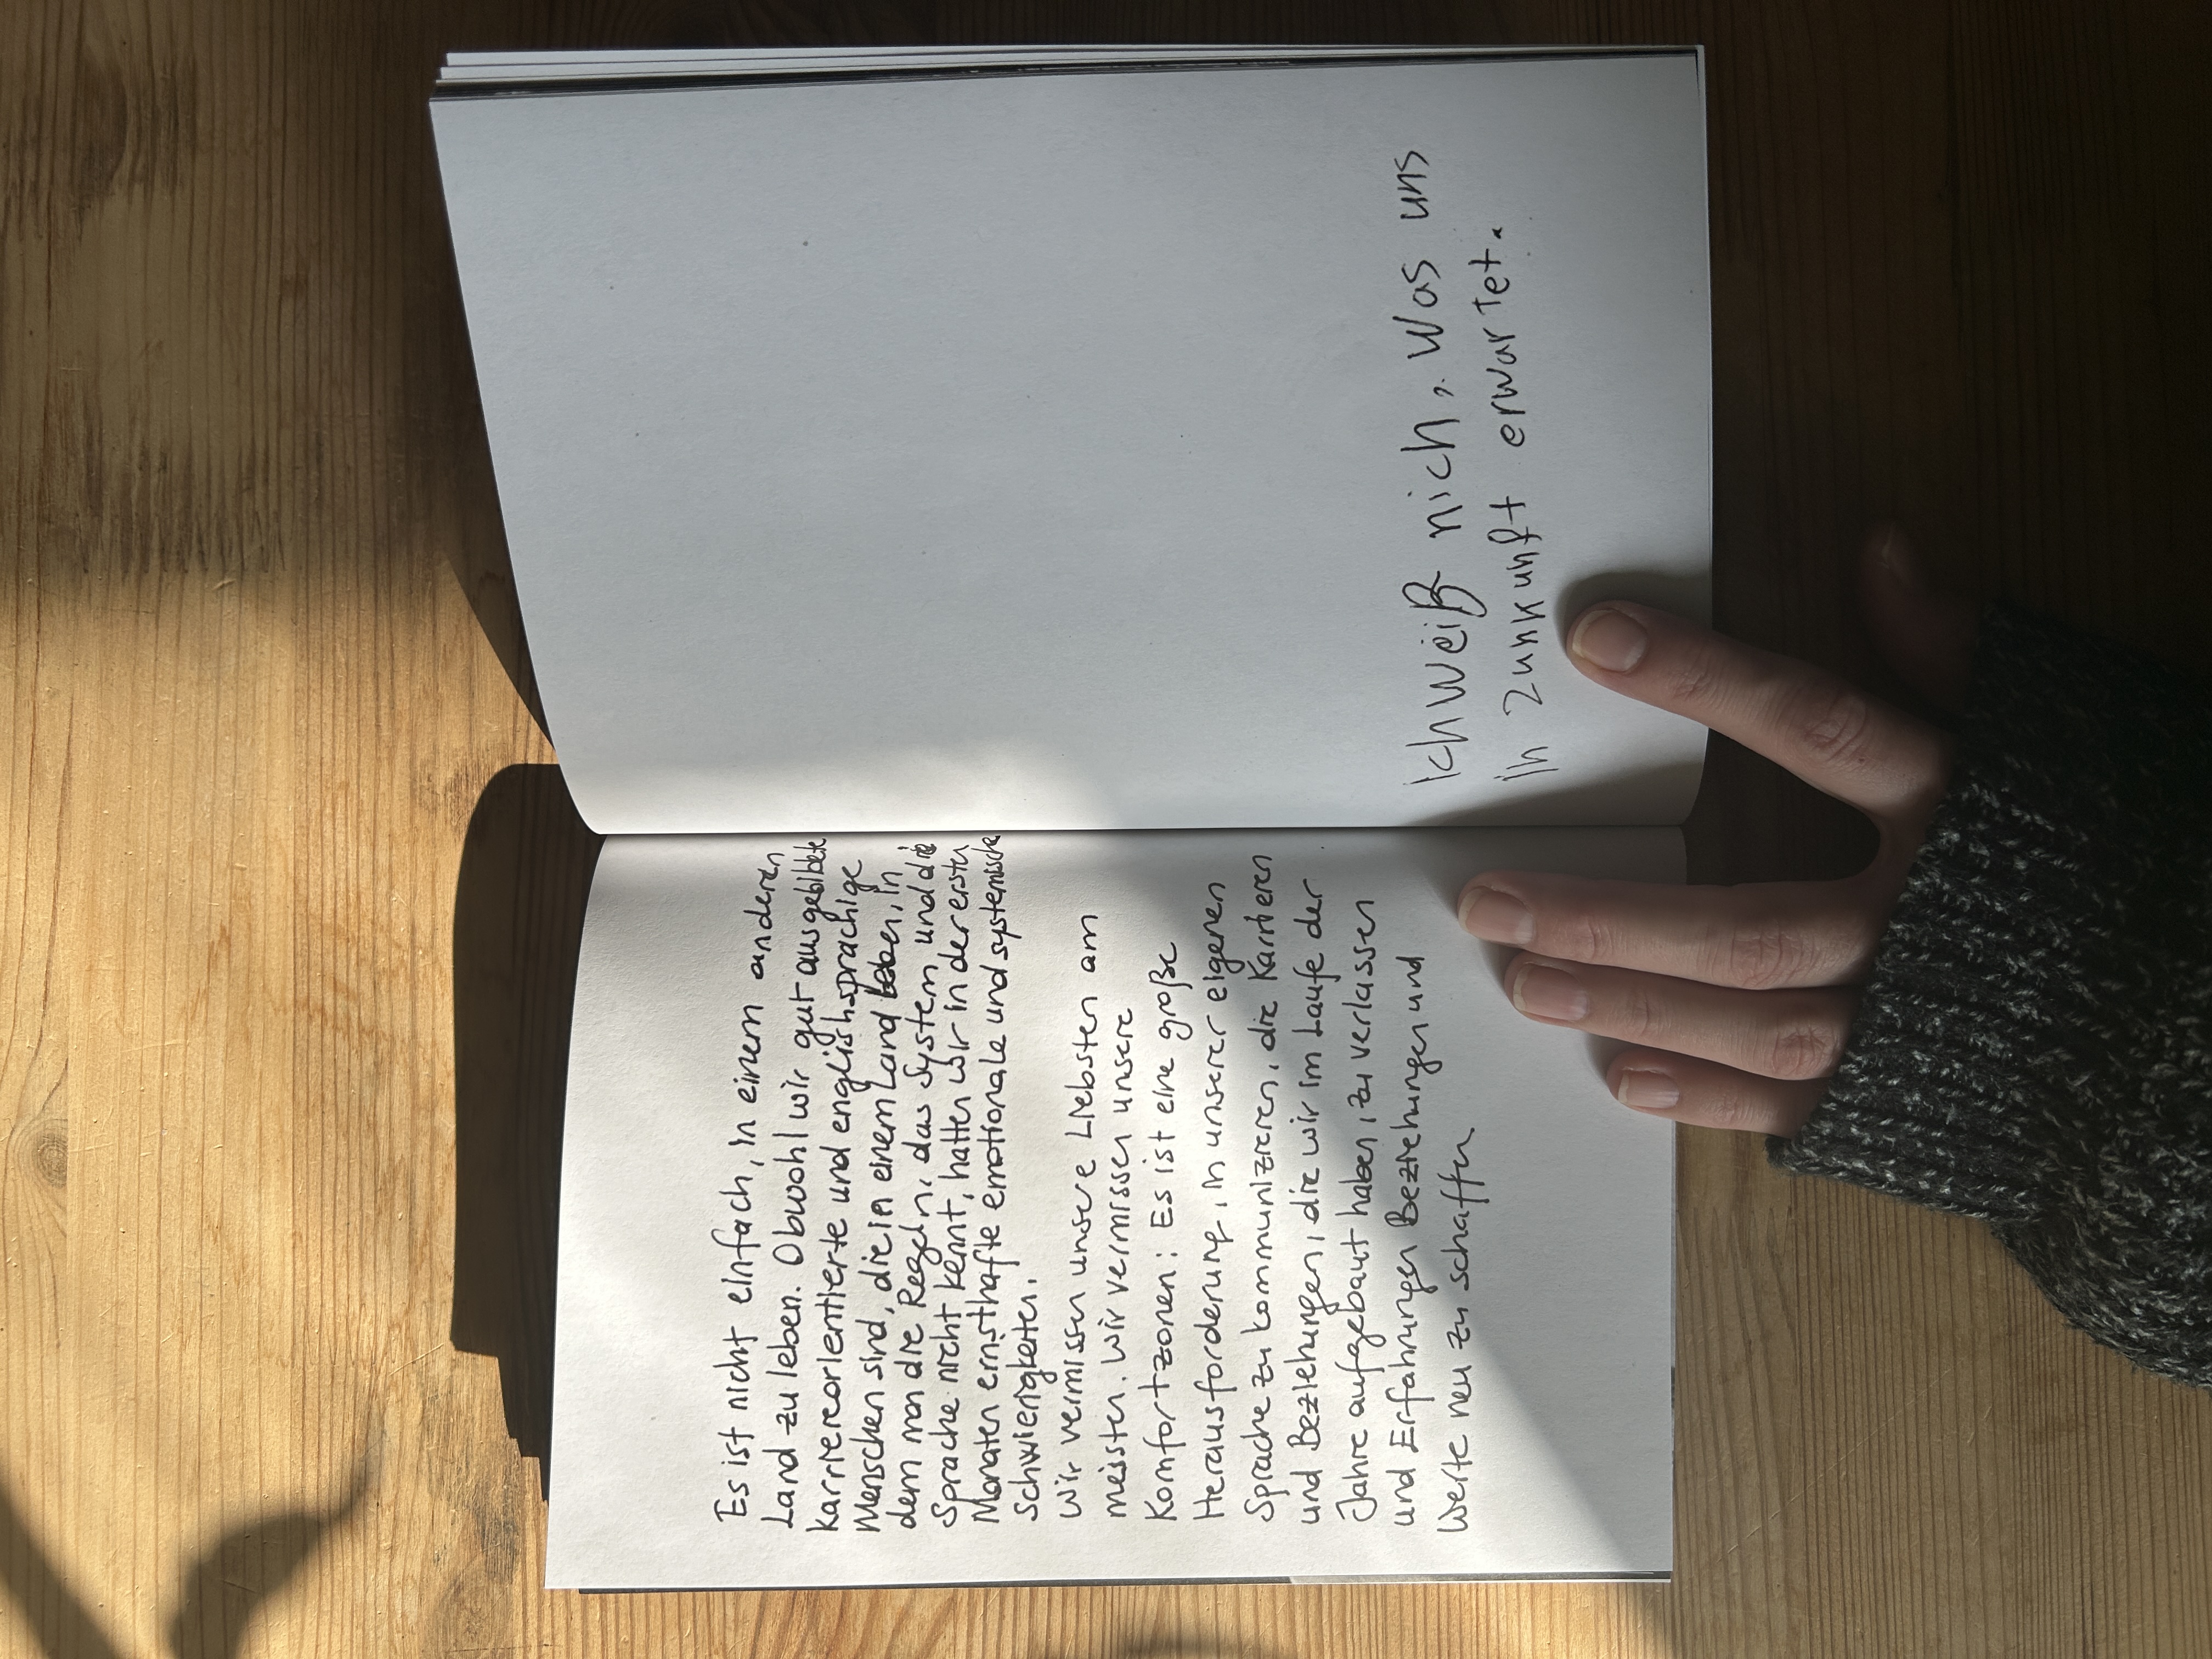 Es ist nicht einfach, in einem anderen
Land zu leben. Obwohl wir gut ausgebildete
karriereorientierte und englischsprachige
Menschen sind, die in einem Land leben, in
dem man die Regeln, das System und die
Sprache nicht kennt, hatten wir in der ersten
Monaten ernsthafte emotionale und systemische
Schwierigkeiten.
Wir vermissen unsere Liebsten am
meisten. Wir vermissen unsere
Komfortzonen: Es ist eine große
Herausforderung, in unserer eigenen
Sprache zu kommunizieren, die Karrieren
und Beziehungen, die wir im Laufe der
Jahre aufgebaut haben, zu verlassen
und Erfahrungen Beziehungen und
Werte neu zu schaffen
Ich weiß nich, was uns
in Zunkunft erwartet.